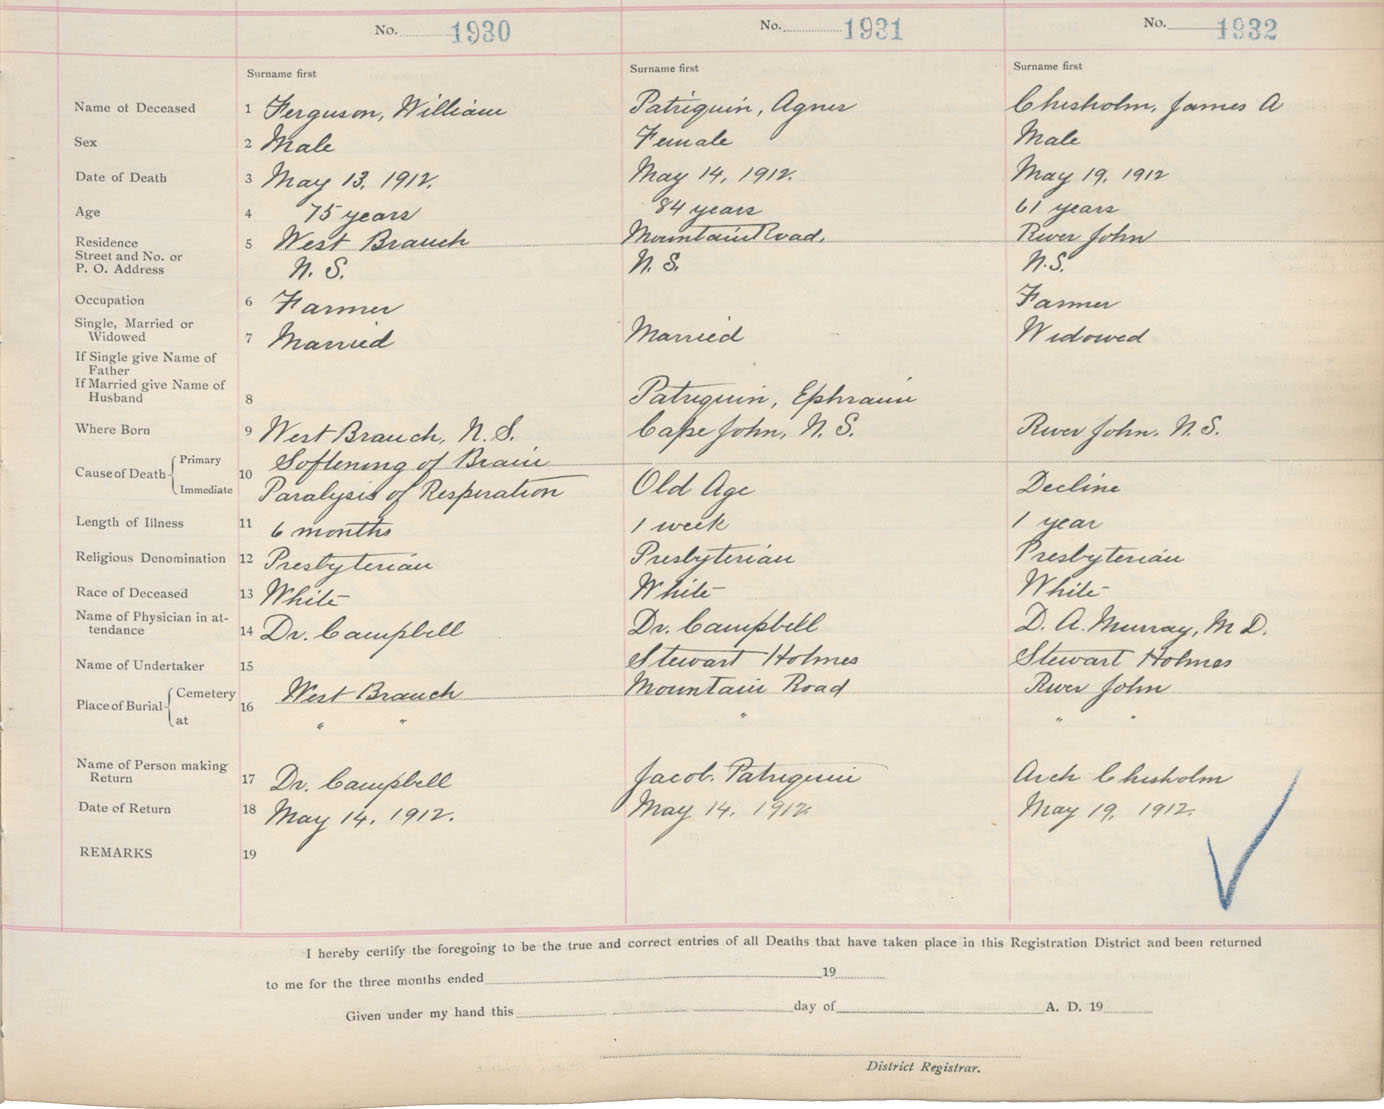 No. 1930 No. 1931 No. 1932
Surname first Surname first Surname first
Name of Deceased 1 Ferguson, William Patriquin, Agnes Chisholm, James A
Sex 2 Male Female Male
Date of Death 3 May 13, 1912. May 14, 1912. May 19, 1912
Age 4 75 years 84 years 61 years
Residence 5 West Branch Mountain Road, River John
Street and No. or
P. O. Address N. S. N. S. N. S.
Occupation 6 Farmer Farmer
Single, Married or
Widowed 7 Married Married Widowed
If Single give Name of
Father
If Married give Name of
Husband 8 Patriquin, Ephraim
Where Born 9 West Branch, N. S. Cape John, N. S. River John, N. S.
Cause of Death Primary 10 Softening of Brain
Immediate Paralysis of Respiration Old Age Decline
Length of Illness 11 6 months 1 week 1 year
Religious Denomination 12 Presbyterian Presbyterian Presbyterian
Race of Deceased 13 White White White
Name of Physician in at-
tendance 14 Dr. Campbell Dr. Campbell D. A. Murray, M D.
Name of Undertaker 15 Stewart Holmes Stewart Holmes
Place of Burial Cemetery 16 West Branch Mountain Road River John
at " " " " "
Name of Person making
Return 17 Dr. Campbell Jacob Patriquin Arch Chisholm
Date of Return 18 May 14, 1912. May 14, 1912. May 19, 1912.
REMARKS 19
I hereby certify the foregoing to be the true and correct entries of all Deaths that have taken place in this Registration District and been returned
to me for the three months ended 19
Given under my hand this day of A. D. 19
District Registrar.